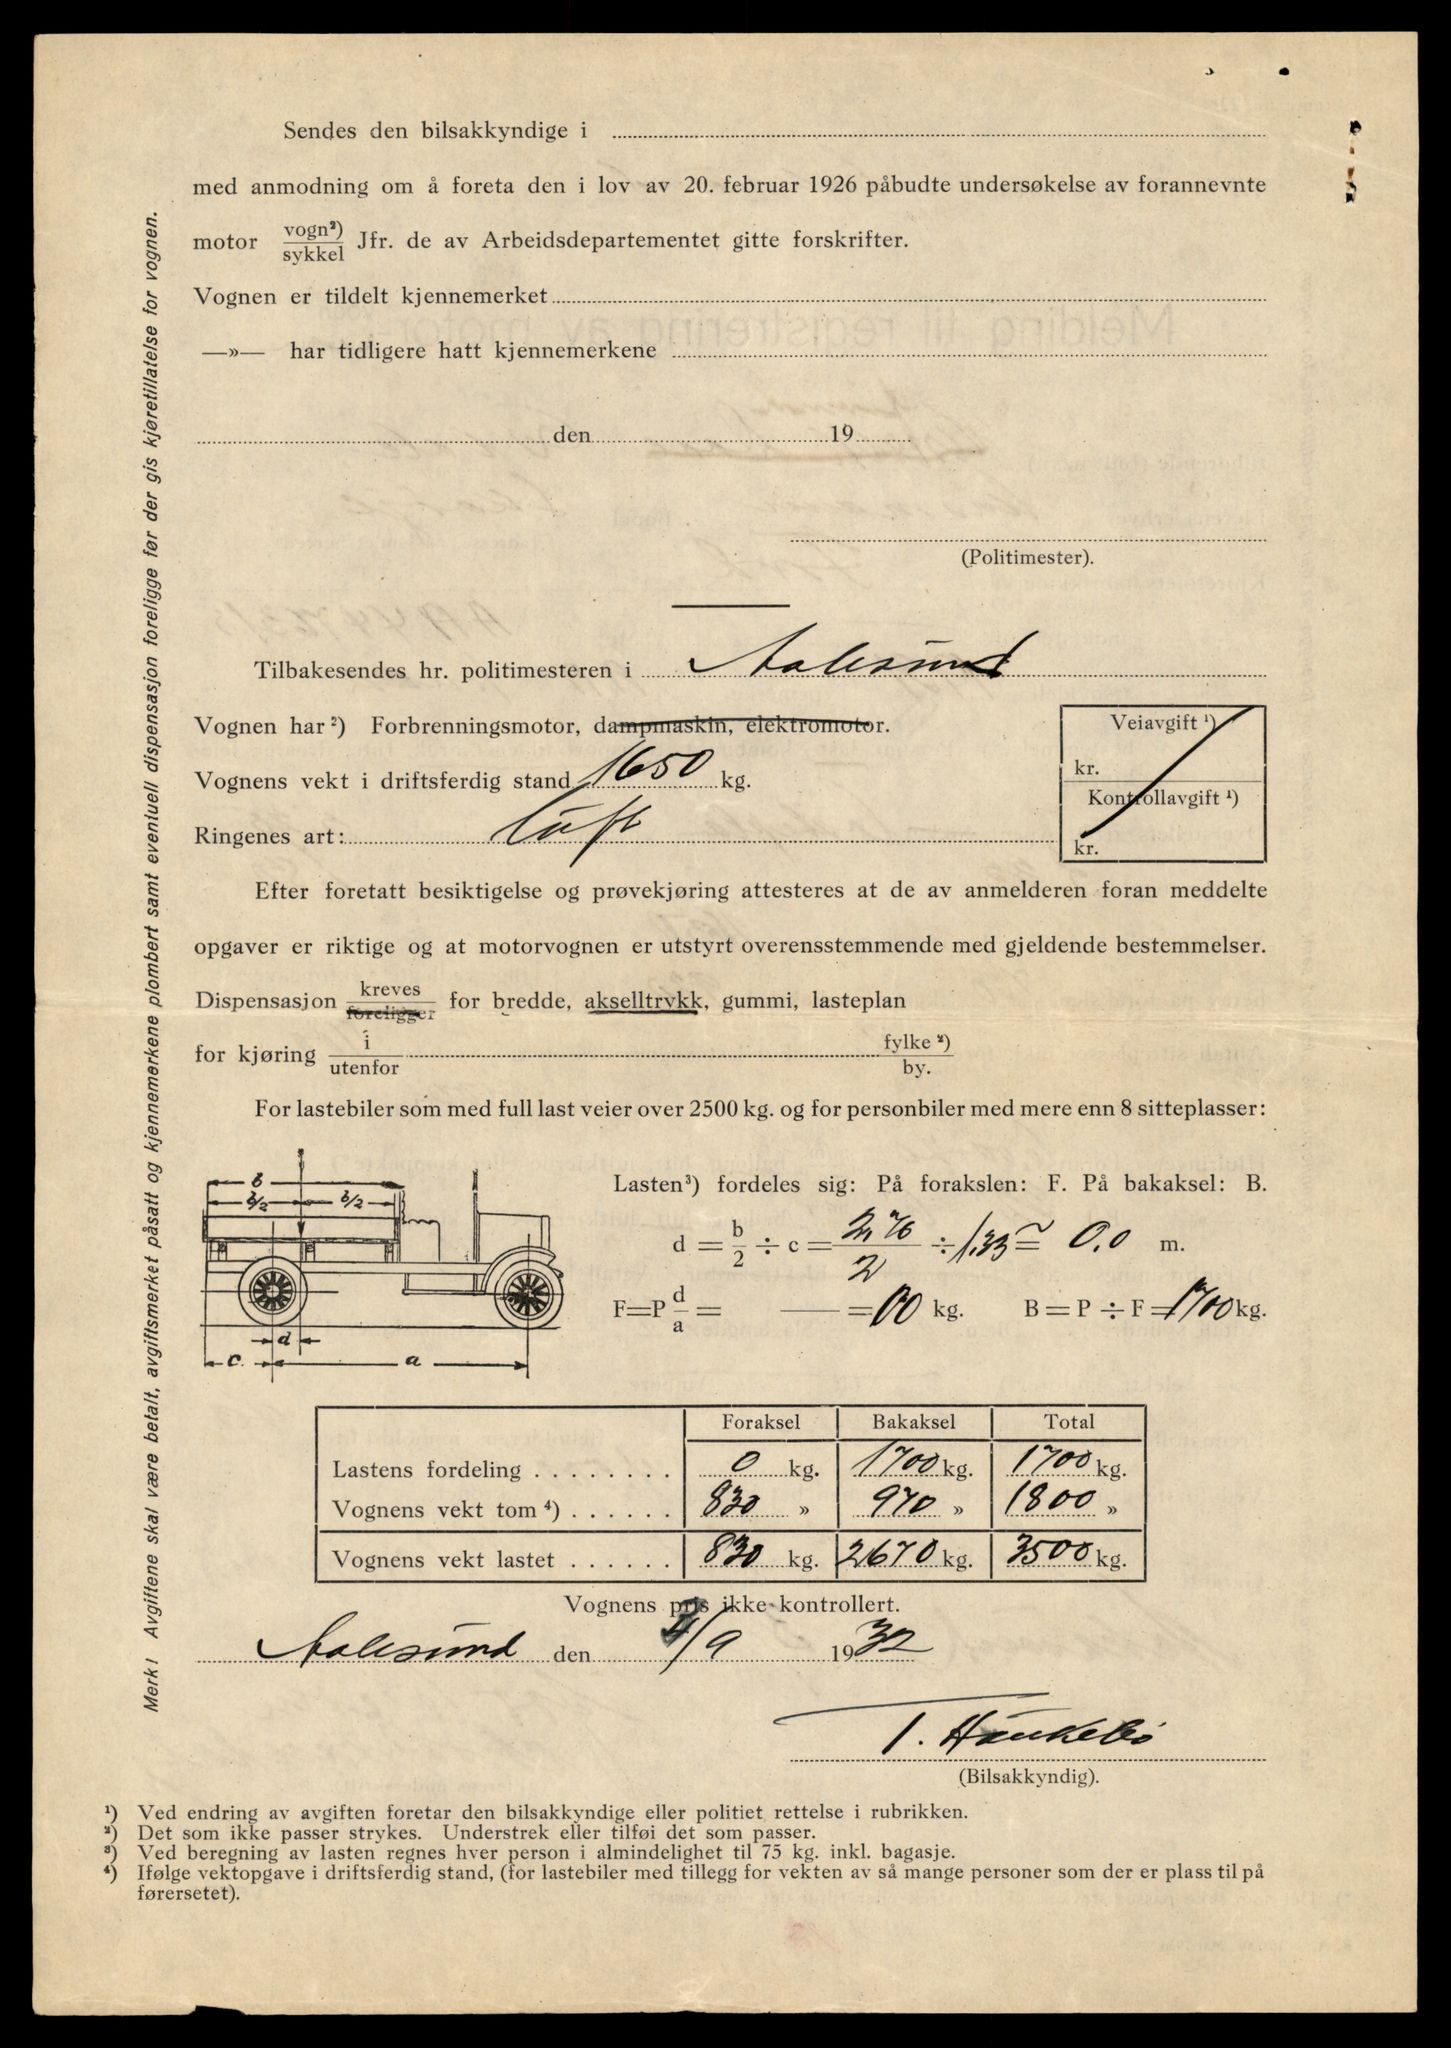 Sendes den bilsakkyndige i
med anmodning om å foreta den i lov av 20. februar 1926 påbudte undersøkelse av forannevnte
motor vogn²)/sykkel Jfr. de av Arbeidsdepartementet gitte forskrifter.
Vognen er tildelt kjennemerket
—»— har tidligere hatt kjennemerkene
den 19
(Politimester).
Tilbakesendes hr. politimesteren i Aalesund
Vognen har ²) Forbrenningsmotor, dampmaskin, elektromotor.
Veiavgift ¹)
kr.
Vognens vekt i driftsferdig stand 1650 kg.
Kontrollavgift ¹)
kr.
Ringenes art: luft
Efter foretatt besiktigelse og prøvekjøring attesteres at de av anmelderen foran meddelte
opgaver er riktige og at motorvognen er utstyrt overensstemmende med gjeldende bestemmelser.
Dispensasjon kreves/foreligger for bredde, akselltrykk, gummi, lasteplan
for kjøring i/utenfor fylke ²)/by.
For lastebiler som med full last veier over 2500 kg. og for personbiler med mere enn 8 sitteplasser:
b
b/2 b/2
d
c. a
Lasten³) fordeles sig: På forakslen: F. På bakaksel: B.
d = b/2 ÷ c = 2,76/2 ÷ 1.33 ≅ 0.0 m.
F=P d/a = — = 00 kg. B = P ÷ F = 1700 kg.
Foraksel Bakaksel Total
Lastens fordeling . . . . . . . . 0 kg. 1700 kg. 1700 kg.
Vognens vekt tom ⁴) . . . . . . 830 » 970 » 1800 »
Vognens vekt lastet . . . . . . 830 kg. 2670 kg. 3500 kg.
Vognens pris ikke kontrollert.
Aalesund den /9 1932
(Bilsakkyndig).
¹) Ved endring av avgiften foretar den bilsakkyndige eller politiet rettelse i rubrikken.
²) Det som ikke passer strykes. Understrek eller tilføi det som passer.
³) Ved beregning av lasten regnes hver person i almindelighet til 75 kg. inkl. bagasje.
⁴) Ifølge vektopgave i driftsferdig stand, (for lastebiler med tillegg for vekten av så mange personer som der er plass til på
førersetet).
Merk! Avgiftene skal være betalt, avgiftsmerket påsatt og kjennemerkene plombert samt eventuell dispensasjon foreligge før der gis kjøretillatelse for vognen.